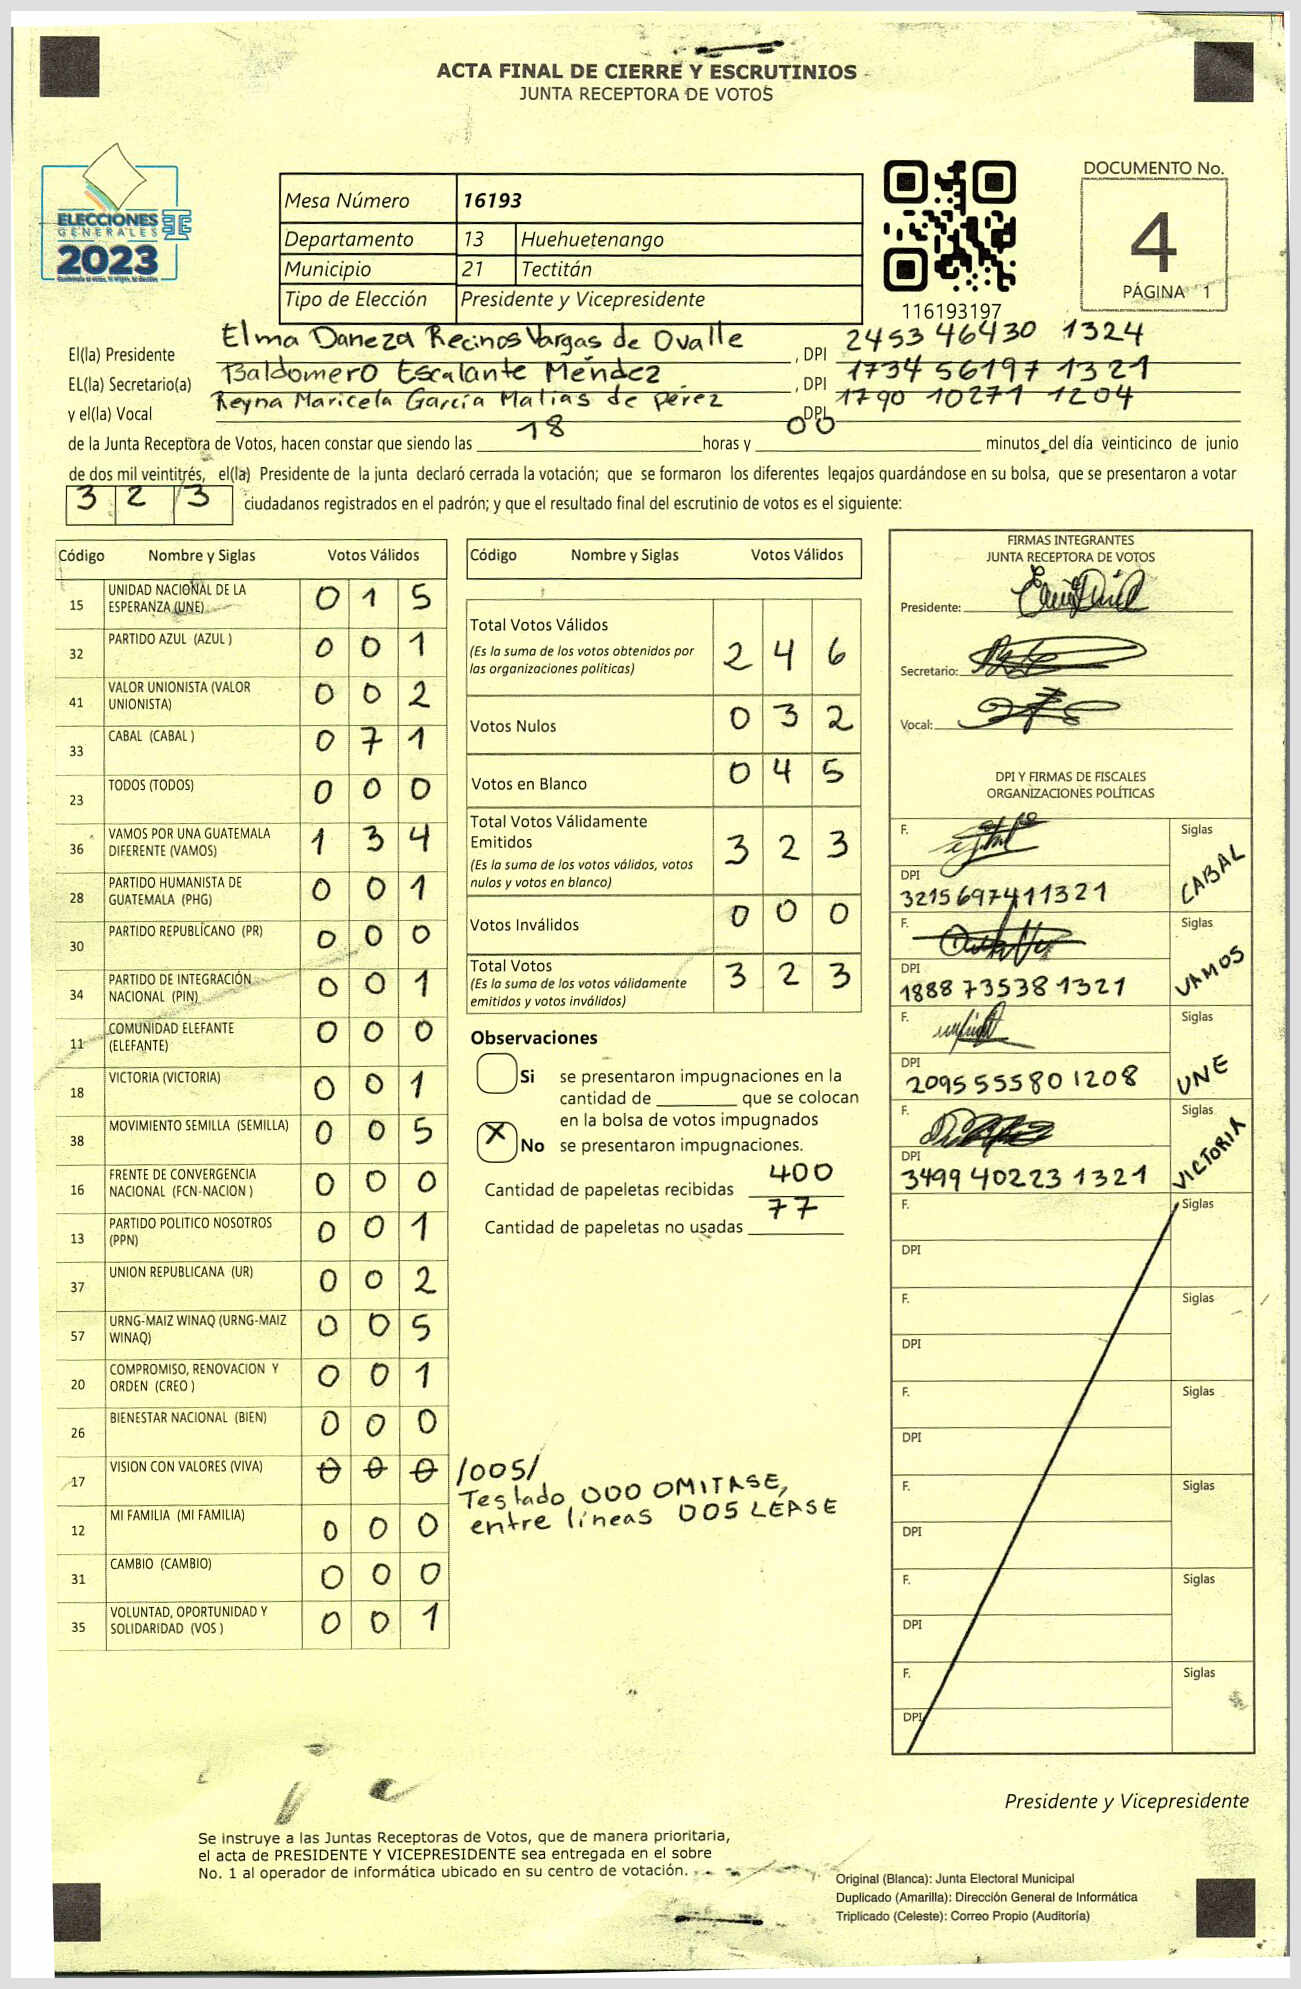 ACTA FINAL DE CIERRE Y ESCRUTINIOS
JUNTA RECEPTORA DE VOTOS
ELECCIONES
GENERALES
2023
TSE
Mesa Número 16193
Departamento 13 Huehuetenango
Municipio 21 Tectitán
Tipo de Elección Presidente y Vicepresidente
116193197
DOCUMENTO No.
4
PÁGINA 1
El(la) Presidente Elma Daneza Recinos Vargas de Ovalle , DPI 2453 46430 1324
EL(la) Secretario(a) Baldomero Escalante Méndez , DPI 1734 56197 1321
y el(la) Vocal Reyna Maricela García Matías de pérez DPI 1790 10271 1204
de la Junta Receptora de Votos, hacen constar que siendo las 18 horas y 00 minutos del día veinticinco de junio
de dos mil veintitrés, el(la) Presidente de la junta declaró cerrada la votación; que se formaron los diferentes legajos quardándose en su bolsa, que se presentaron a votar
3 2 3 ciudadanos registrados en el padrón; y que el resultado final del escrutinio de votos es el siguiente:
Código Nombre y Siglas Votos Válidos
15 UNIDAD NACIONAL DE LA ESPERANZA (UNE) 0 1 5
32 PARTIDO AZUL (AZUL ) 0 0 1
41 VALOR UNIONISTA (VALOR UNIONISTA) 0 0 2
33 CABAL (CABAL ) 0 7 1
23 TODOS (TODOS) 0 0 0
36 VAMOS POR UNA GUATEMALA DIFERENTE (VAMOS) 1 3 4
28 PARTIDO HUMANISTA DE GUATEMALA (PHG) 0 0 1
30 PARTIDO REPUBLICANO (PR) 0 0 0
34 PARTIDO DE INTEGRACIÓN NACIONAL (PIN) 0 0 1
11 COMUNIDAD ELEFANTE (ELEFANTE) 0 0 0
18 VICTORIA (VICTORIA) 0 0 1
38 MOVIMIENTO SEMILLA (SEMILLA) 0 0 5
16 FRENTE DE CONVERGENCIA NACIONAL (FCN-NACION ) 0 0 0
13 PARTIDO POLITICO NOSOTROS (PPN) 0 0 1
37 UNION REPUBLICANA (UR) 0 0 2
57 URNG-MAIZ WINAQ (URNG-MAIZ WINAQ) 0 0 5
20 COMPROMISO, RENOVACION Y ORDEN (CREO ) 0 0 1
26 BIENESTAR NACIONAL (BIEN) 0 0 0
17 VISION CON VALORES (VIVA) 0 0 0 /005/
Testado 000 OMITASE,
entre líneas 005 LEASE
12 MI FAMILIA (MI FAMILIA) 0 0 0
31 CAMBIO (CAMBIO) 0 0 0
35 VOLUNTAD, OPORTUNIDAD Y SOLIDARIDAD (VOS ) 0 0 1
Código Nombre y Siglas Votos Válidos
Total Votos Válidos 2 4 6
(Es la suma de los votos obtenidos por
las organizaciones políticas)
Votos Nulos 0 3 2
Votos en Blanco 0 4 5
Total Votos Válidamente
Emitidos 3 2 3
(Es la suma de los votos válidos, votos
nulos y votos en blanco)
Votos Inválidos 0 0 0
Total Votos 3 2 3
(Es la suma de los votos válidamente
emitidos y votos inválidos)
Observaciones
Si se presentaron impugnaciones en la
cantidad de ________ que se colocan
en la bolsa de votos impugnados
X No se presentaron impugnaciones.
Cantidad de papeletas recibidas 400
Cantidad de papeletas no usadas 77
FIRMAS INTEGRANTES
JUNTA RECEPTORA DE VOTOS
Presidente:
Secretario:
Vocal:
DPI Y FIRMAS DE FISCALES
ORGANIZACIONES POLÍTICAS
F. Siglas CABAL
DPI
3215697411321
F. Siglas VAMOS
DPI
1888 73538 1321
F. Siglas UNE
DPI
2095 55580 1208
F. Siglas VICTORIA
DPI
3499 40223 1321
F. Siglas
DPI
F. Siglas
DPI
F. Siglas
DPI
F. Siglas
DPI
F. Siglas
DPI
F. Siglas
DPI
Presidente y Vicepresidente
Se instruye a las Juntas Receptoras de Votos, que de manera prioritaria,
el acta de PRESIDENTE Y VICEPRESIDENTE sea entregada en el sobre
No. 1 al operador de informática ubicado en su centro de votación.
Original (Blanca): Junta Electoral Municipal
Duplicado (Amarilla): Dirección General de Informática
Triplicado (Celeste): Correo Propio (Auditoría)